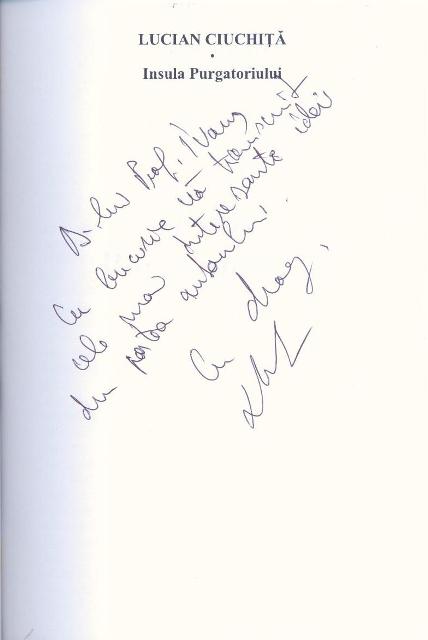 LUCIAN CIUCHIȚĂ
•
Insula Purgatoriului
D-lui Prof. Ivanuș
Cu bucurie vă transmit
cele mai interesante idei
din partea autorului.
Cu drag,